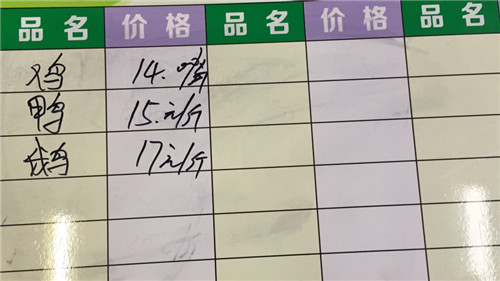 品名 价格 品名 价格 品名
鸡 14.元/斤
鸭 15.元/斤
鹅 17元/斤